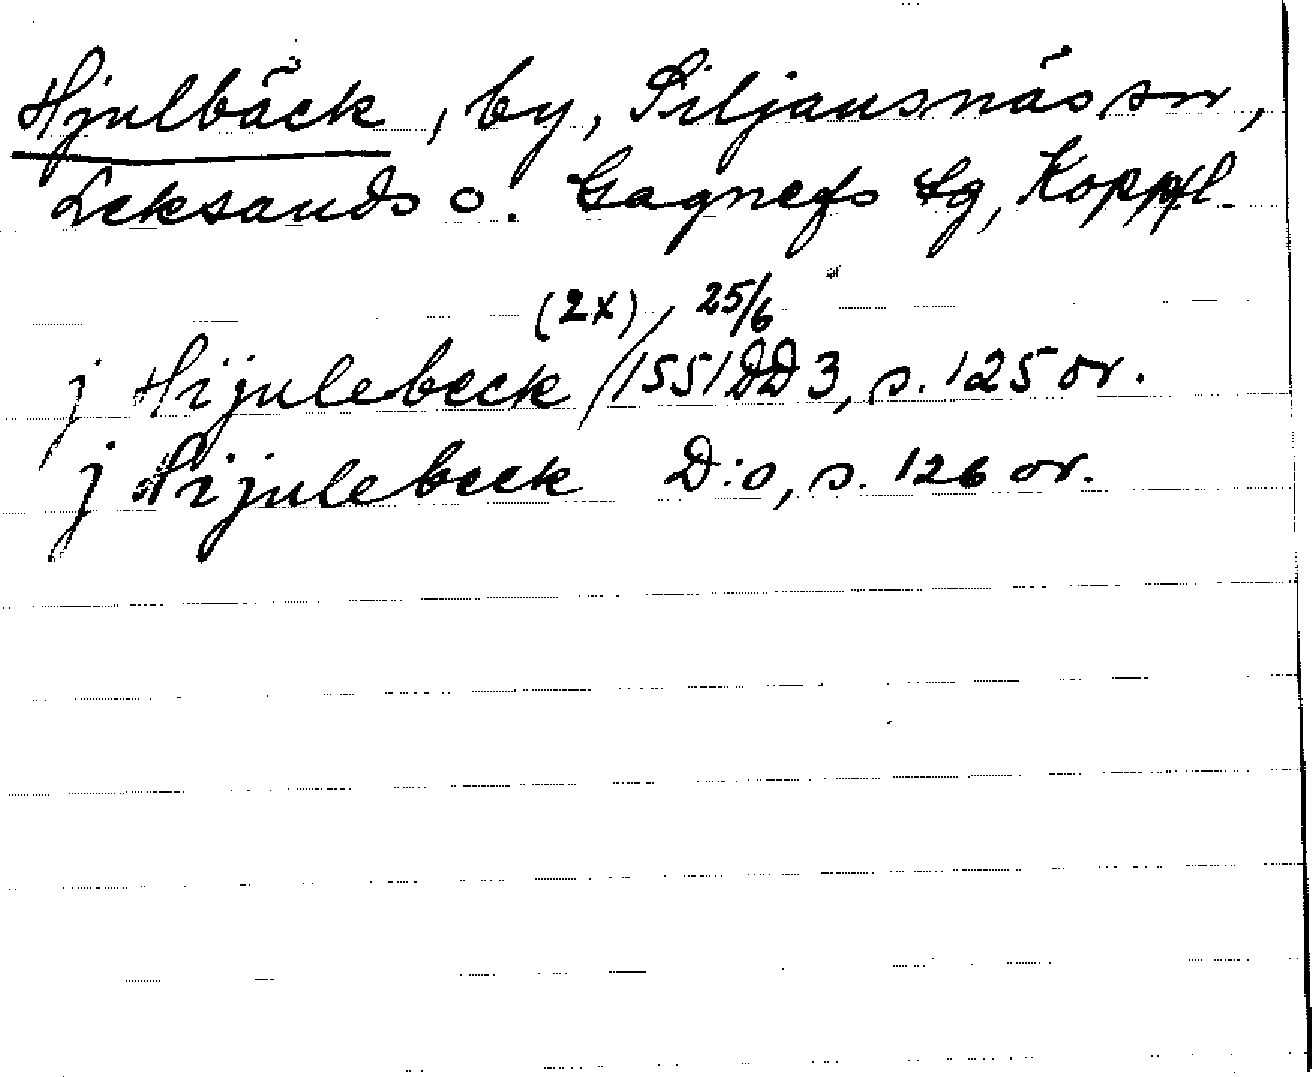 Hjulbäck, by, Siljansnäs sn,
Leksands o. Gagnefs tg, Koppl.
(2x) 25/6
j Hijulebeck / 1551 DD 3, s. 125 or.
j Hijulebeck D:o, s. 126 or.